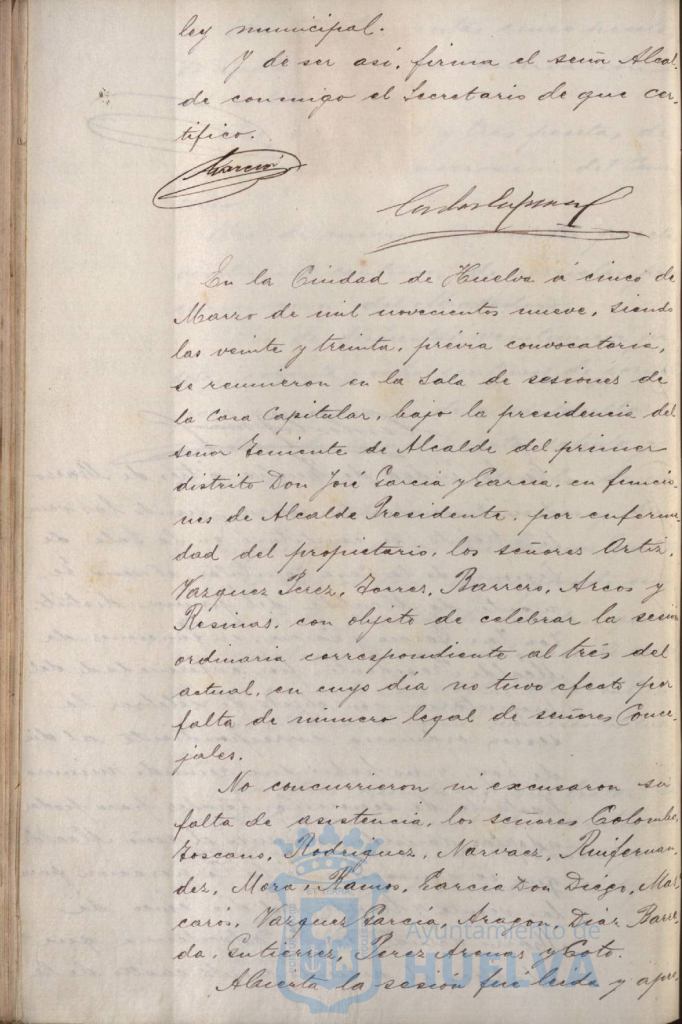 ley municipal.
Y de ser así, firma el señor Alcal-
de conmigo el Secretario de que cer-
tifico.
Garcia
En la Ciudad de Huelva á cinco de
Marzo de mil novecientos nueve, siendo
las veinte y treinta, prévia convocatoria,
se reunieron en la Sala de sesiones de
la Casa Capitular, bajo la presidencia del
señor Teniente de Alcalde del primer
distrito Don José Garcia y Garcia, en funcio-
nes de Alcalde Presidente, por enferme-
dad del propietario, los señores Ortiz,
Vazquez Perez, Torres, Barrero, Arcos y
Resinas, con objeto de celebrar la sesión
ordinaria correspondiente al trés del
actual, en cuyo día no tuvo efecto por
falta de número legal de señores Conce-
jales.
No concurrieron ni excusaron su
falta de asistencia, los señores Colombo,
Toscano, Rodriguez, Narvaez, Ruifernan-
dez, Mora, Ramos, Garcia Don Diégo, Mas-
carós, Vazquez Garcia, Aragon, Diaz Barre-
da, Gutierrez, Perez Arenas y Coto.
Abierta la sesión fué leida y apro-
Ayuntamiento de
HUELVA